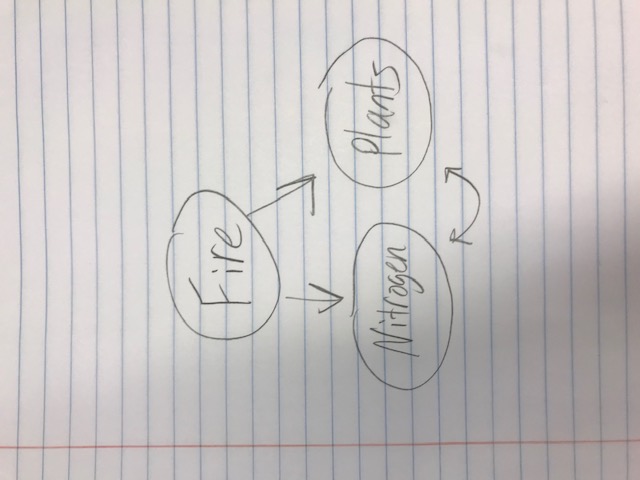 Fire
Nitrogen
Plants